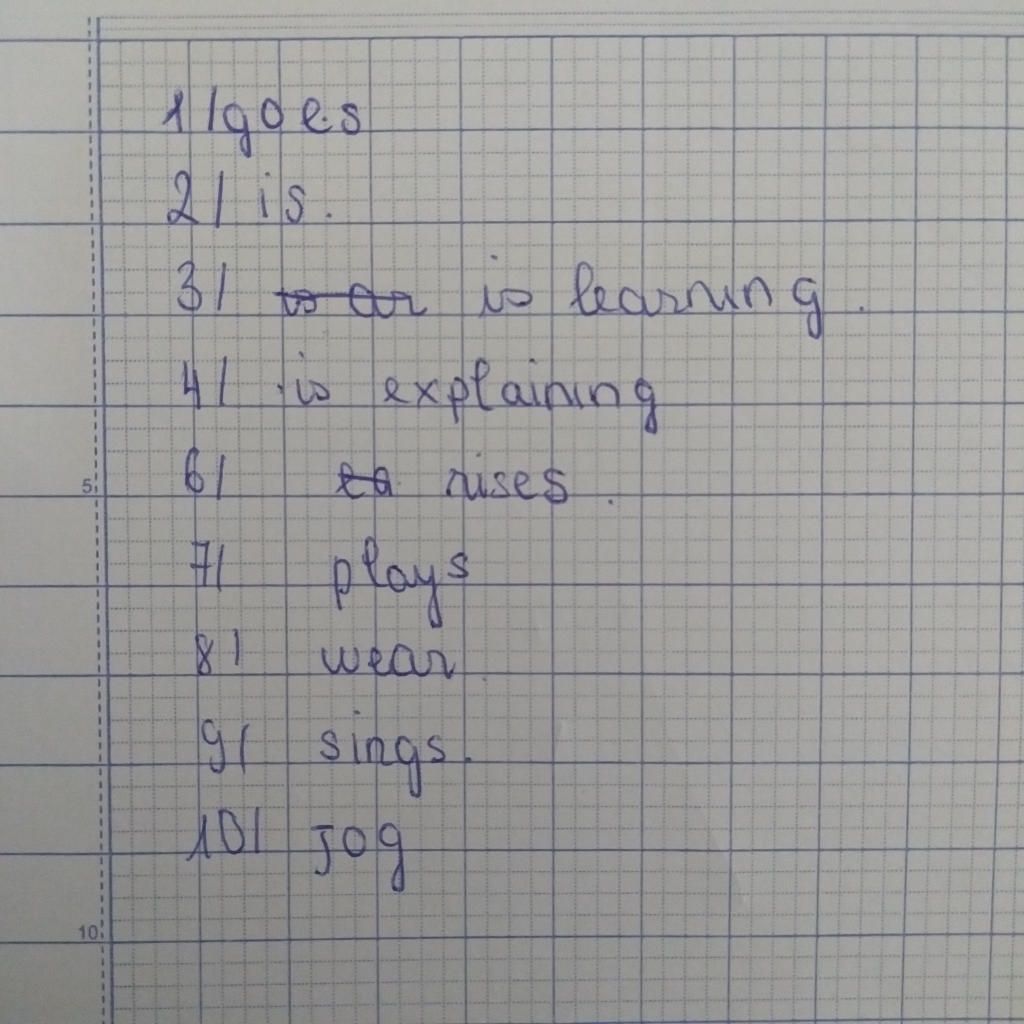 1/ goes
2/ is.
3/ is learning.
4/ is explaining
5
6/ rises.
7/ plays
8/ wear
9/ sings.
10/ jog
10